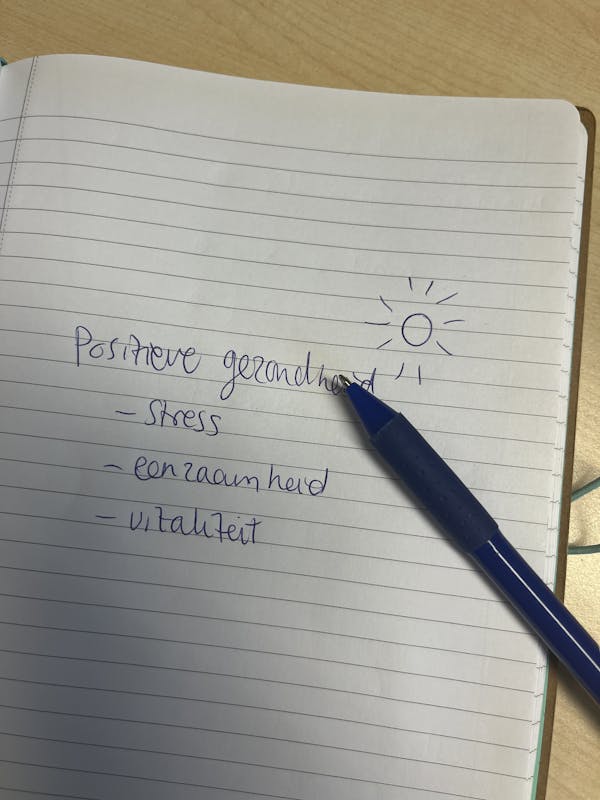 Positieve gezondheid
- Stress
- eenzaamheid
- vitaliteit